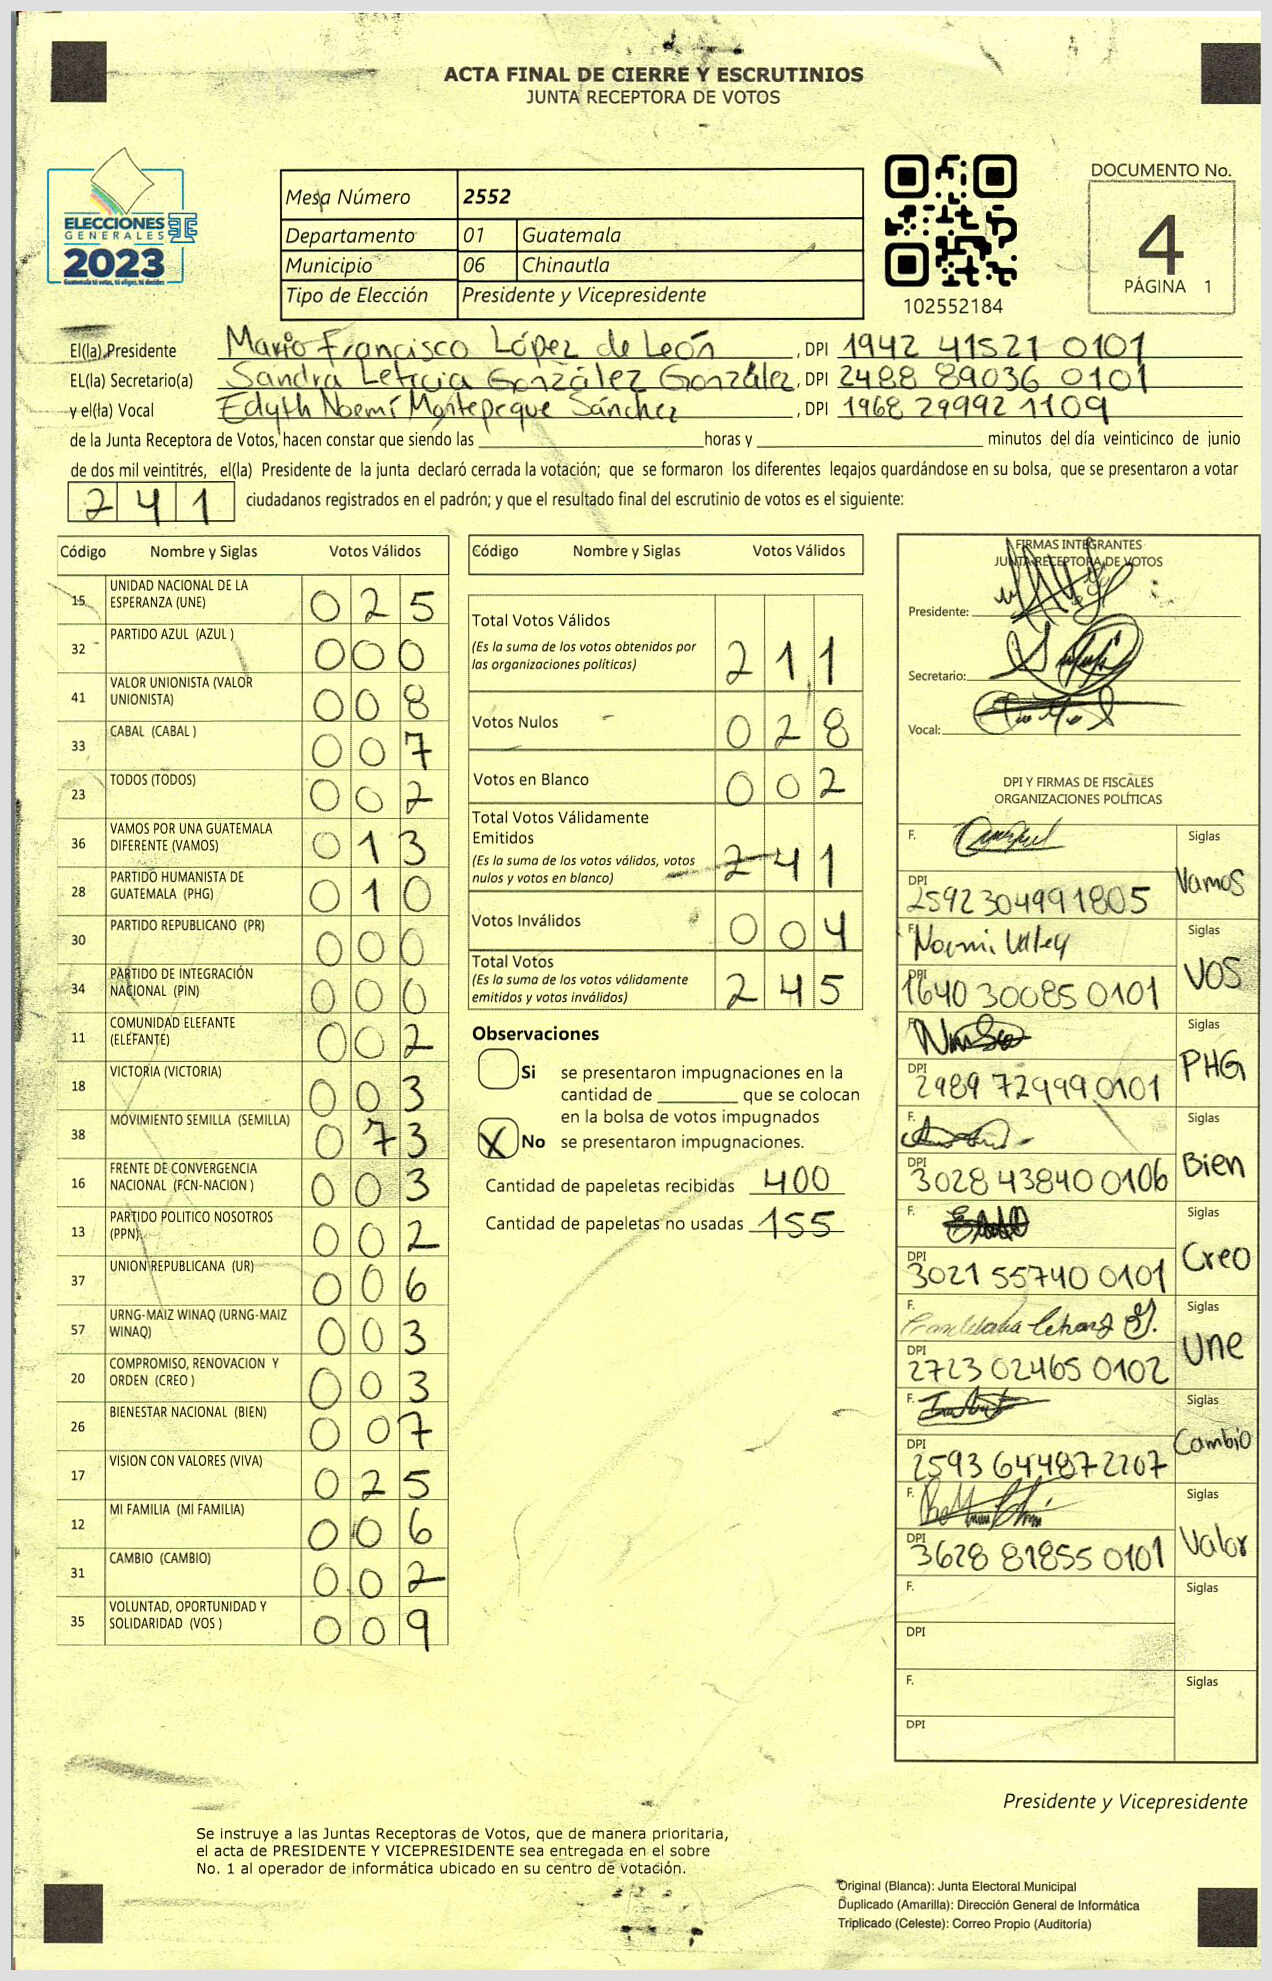 ACTA FINAL DE CIERRE Y ESCRUTINIOS
JUNTA RECEPTORA DE VOTOS
ELECCIONES
GENERALES
2023
Mesa Número 2552
Departamento 01 Guatemala
Municipio 06 Chinautla
Tipo de Elección Presidente y Vicepresidente
102552184
DOCUMENTO No.
4
PÁGINA 1
El(la) Presidente Mario Francisco López de León, DPI 1942 41521 0101
EL(la) Secretario(a) Sandra Leticia González González, DPI 2488 89036 0101
y el(la) Vocal Edyth Noemí Montepeque Sánchez, DPI 1968 29992 1109
de la Junta Receptora de Votos, hacen constar que siendo las ____ horas y ____ minutos del día veinticinco de junio
de dos mil veintitrés, el(la) Presidente de la junta declaró cerrada la votación; que se formaron los diferentes legajos guardándose en su bolsa, que se presentaron a votar
241 ciudadanos registrados en el padrón; y que el resultado final del escrutinio de votos es el siguiente:
Código Nombre y Siglas Votos Válidos
15 UNIDAD NACIONAL DE LA ESPERANZA (UNE) 025
32 PARTIDO AZUL (AZUL ) 000
41 VALOR UNIONISTA (VALOR UNIONISTA) 008
33 CABAL (CABAL ) 007
23 TODOS (TODOS) 002
36 VAMOS POR UNA GUATEMALA DIFERENTE (VAMOS) 013
28 PARTIDO HUMANISTA DE GUATEMALA (PHG) 010
30 PARTIDO REPUBLICANO (PR) 000
34 PARTIDO DE INTEGRACIÓN NACIONAL (PIN) 000
11 COMUNIDAD ELEFANTE (ELEFANTE) 002
18 VICTORIA (VICTORIA) 003
38 MOVIMIENTO SEMILLA (SEMILLA) 073
16 FRENTE DE CONVERGENCIA NACIONAL (FCN-NACION ) 003
13 PARTIDO POLITICO NOSOTROS (PPN) 002
37 UNION REPUBLICANA (UR) 006
57 URNG-MAIZ WINAQ (URNG-MAIZ WINAQ) 003
20 COMPROMISO, RENOVACION Y ORDEN (CREO ) 003
26 BIENESTAR NACIONAL (BIEN) 007
17 VISION CON VALORES (VIVA) 025
12 MI FAMILIA (MI FAMILIA) 006
31 CAMBIO (CAMBIO) 002
35 VOLUNTAD, OPORTUNIDAD Y SOLIDARIDAD (VOS ) 009
Código Nombre y Siglas Votos Válidos
Total Votos Válidos
(Es la suma de los votos obtenidos por
las organizaciones políticas) 211
Votos Nulos 028
Votos en Blanco 002
Total Votos Válidamente
Emitidos
(Es la suma de los votos válidos, votos
nulos y votos en blanco) 241
Votos Inválidos 004
Total Votos
(Es la suma de los votos válidamente
emitidos y votos inválidos) 245
Observaciones
Si se presentaron impugnaciones en la
cantidad de ____ que se colocan
en la bolsa de votos impugnados
X No se presentaron impugnaciones.
Cantidad de papeletas recibidas 400
Cantidad de papeletas no usadas 155
FIRMAS INTEGRANTES
JUNTA RECEPTORA DE VOTOS
Presidente:
Secretario:
Vocal:
DPI Y FIRMAS DE FISCALES
ORGANIZACIONES POLÍTICAS
F. Siglas
DPI 2592304991805 Vamos
F. Siglas
DPI 1640 30085 0101 VOS
F. Siglas
DPI 2989 72999 0101 PHG
F. Siglas
DPI 3028 43840 0106 Bien
F. Siglas
DPI 3021 55740 0101 Creo
F. Siglas
DPI 2723 02465 0102 Une
F. Siglas
DPI 2593 64487 2207 Cambio
F. Siglas
DPI 3628 81855 0101 Valor
F. Siglas
DPI
F. Siglas
DPI
Presidente y Vicepresidente
Se instruye a las Juntas Receptoras de Votos, que de manera prioritaria,
el acta de PRESIDENTE Y VICEPRESIDENTE sea entregada en el sobre
No. 1 al operador de informática ubicado en su centro de votación.
Original (Blanca): Junta Electoral Municipal
Duplicado (Amarilla): Dirección General de Informática
Triplicado (Celeste): Correo Propio (Auditoría)